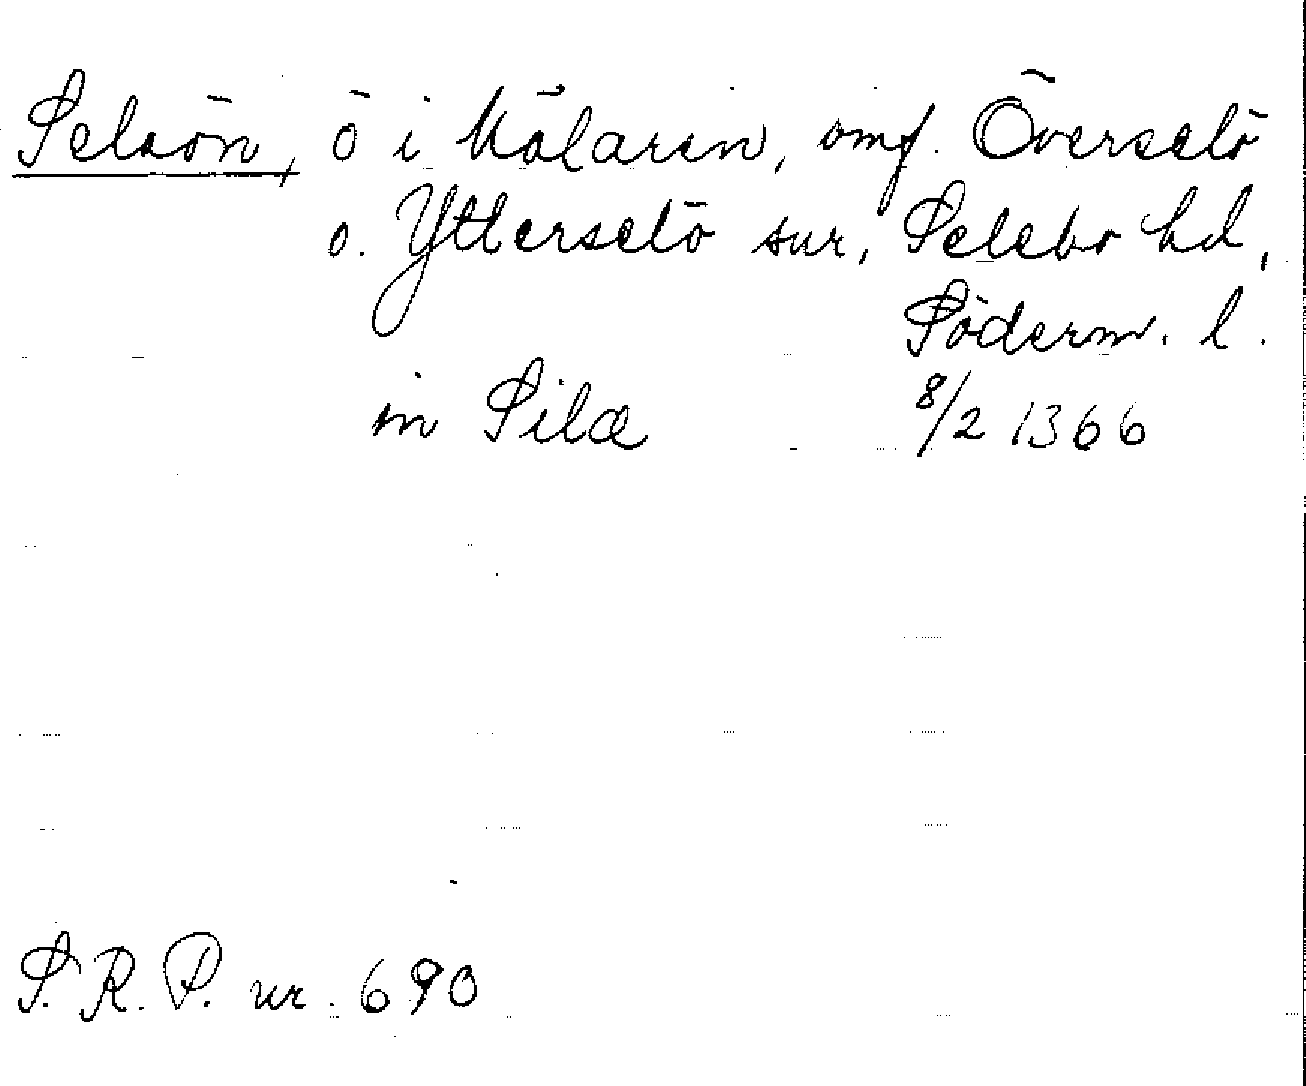 Selaön, ö i Mälaren, omf. Överselö
o. Ytterselö snr, Selebo hd,
Söderm. l.
in Silæ 8/2 1366
S.R.P. nr. 690